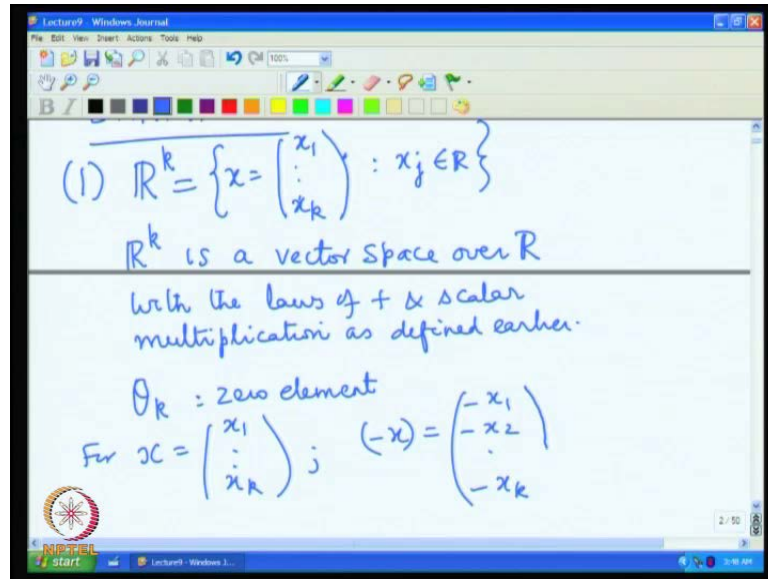 Lecture9 - Windows Journal
File Edit View Insert Actions Tools Help
100%
B I
(1) ℝ^k = { x = (x₁ ⋮ x_k) : x_j ∈ R }
ℝ^k is a vector space over ℝ
with the laws of + & scalar
multiplication as defined earlier.
θ_k : zero element
For x = (x₁ ⋮ x_k) ; (-x) = (-x₁ -x₂ ⋮ -x_k)
2 / 50
NPTEL
start Lecture9 - Windows J... 3:48 AM